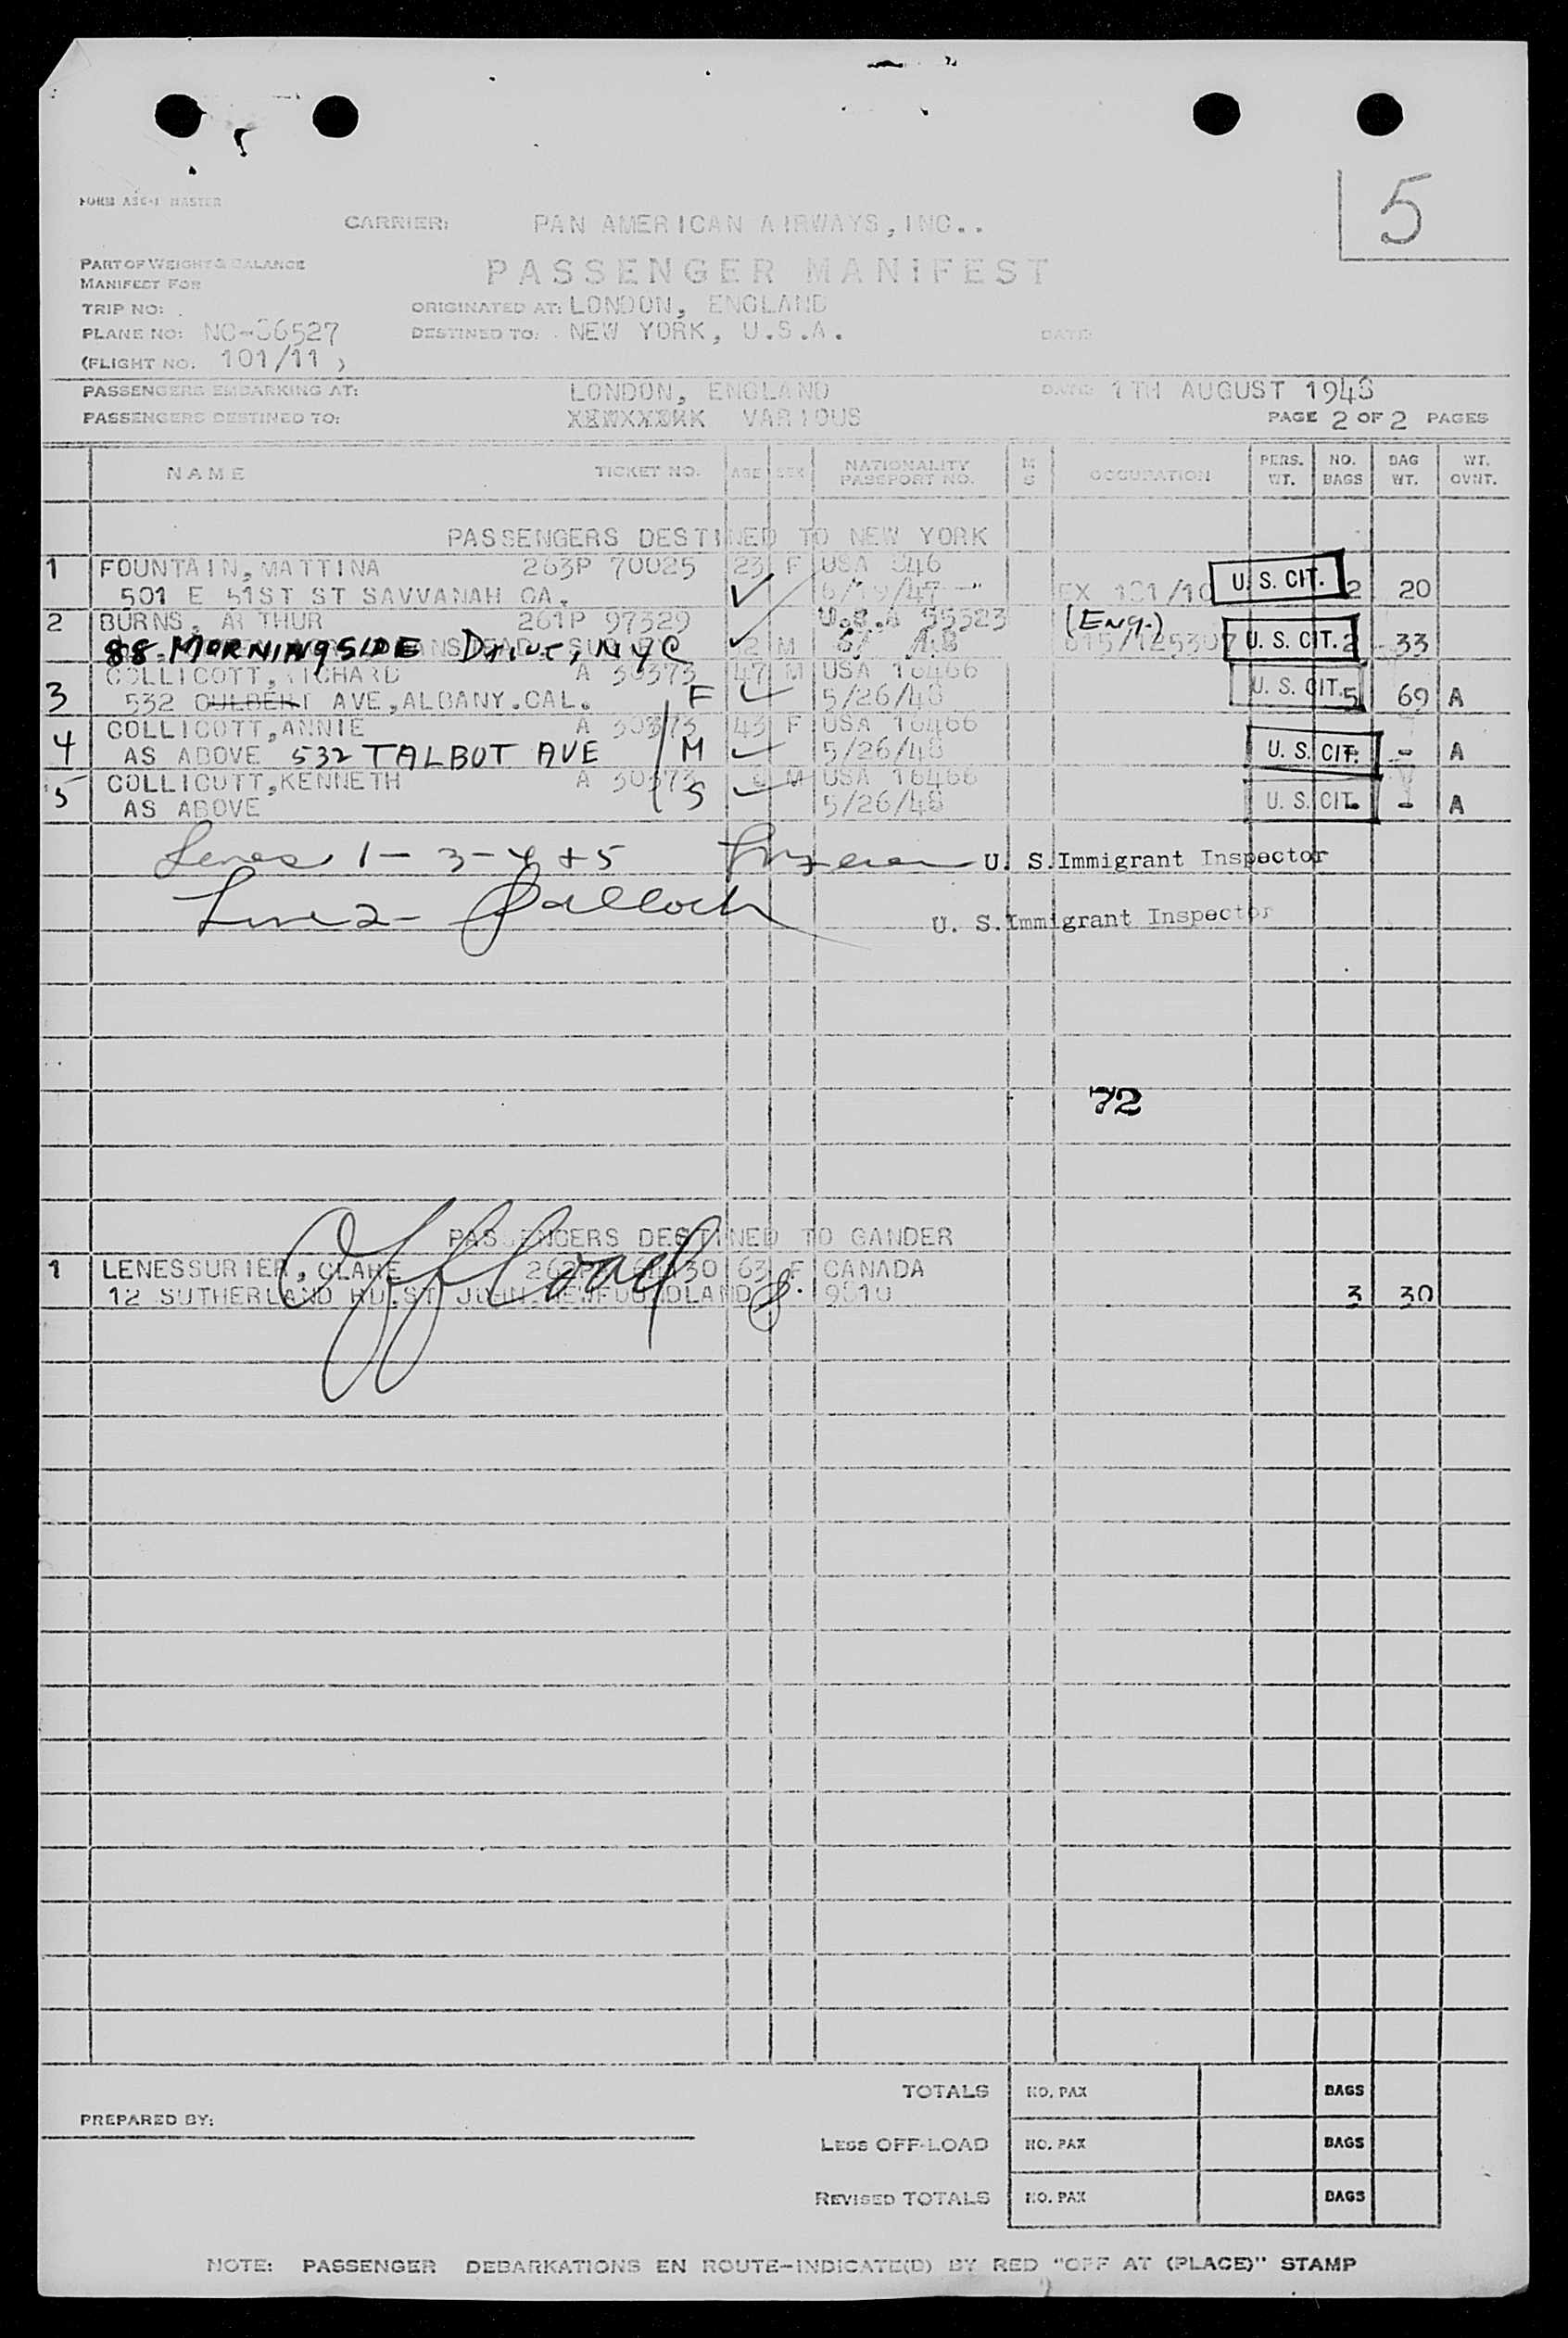 5
FORM ASC-1 MASTER
CARRIER: PAN AMERICAN AIRWAYS, INC..
PART OF WEIGHT & BALANCE
PASSENGER MANIFEST
MANIFEST FOR
TRIP NO: ORIGINATED AT: LONDON, ENGLAND
PLANE NO: NC-86527 DESTINED TO: NEW YORK, U.S.A. DATE:
(FLIGHT NO. 101/11 )
PASSENGERS EMBARKING AT: LONDON, ENGLAND DATE: 1TH AUGUST 1948
PASSENGERS DESTINED TO: VARIOUS PAGE 2 OF 2 PAGES
NAME TICKET NO. AGE SEX NATIONALITY PASSPORT NO. M S OCCUPATION PERS. WT. NO. BAGS BAG WT. WT. OVNT.
PASSENGERS DESTINED TO NEW YORK
1 FOUNTAIN, MATTINA 263P 70025 23 F USA
501 E 51ST ST SAVVANAH GA. 6/19/47 EX U. S. CIT. 2 20
2 BURNS, ARTHUR 261P 97329 U.S.A 55323 (Eng.)
88 MORNINGSIDE Drive, NYC M U. S. CIT. 2 33
COLLICOTT, RICHARD A 30373 47 M USA 16466
3 532 AVE, ALBANY. CAL. F 5/26/48 U. S. CIT. 5 69 A
COLLICOTT, ANNIE A 30373 43 F USA 16466
4 AS ABOVE 532 TALBOT AVE M 5/26/48 U. S. CIT. - - A
5 COLLICOTT, KENNETH A 30373 M USA 16466
AS ABOVE S 5/26/48 U. S. CIT. - - A
Lines 1-3-4+5 U. S. Immigrant Inspector
Line 2- U. S. Immigrant Inspector
72
PASSENGERS DESTINED TO GANDER
Offload
1 LENESSURIER, CLARE 63 F CANADA
12 SUTHERLAND RD. ST JOHN NEWFOUNDLAND 3 30
TOTALS NO. PAX BAGS
PREPARED BY:
LESS OFF-LOAD NO. PAX BAGS
REVISED TOTALS NO. PAX BAGS
NOTE: PASSENGER DEBARKATIONS EN ROUTE-INDICATE(D) BY RED "OFF AT (PLACE)" STAMP